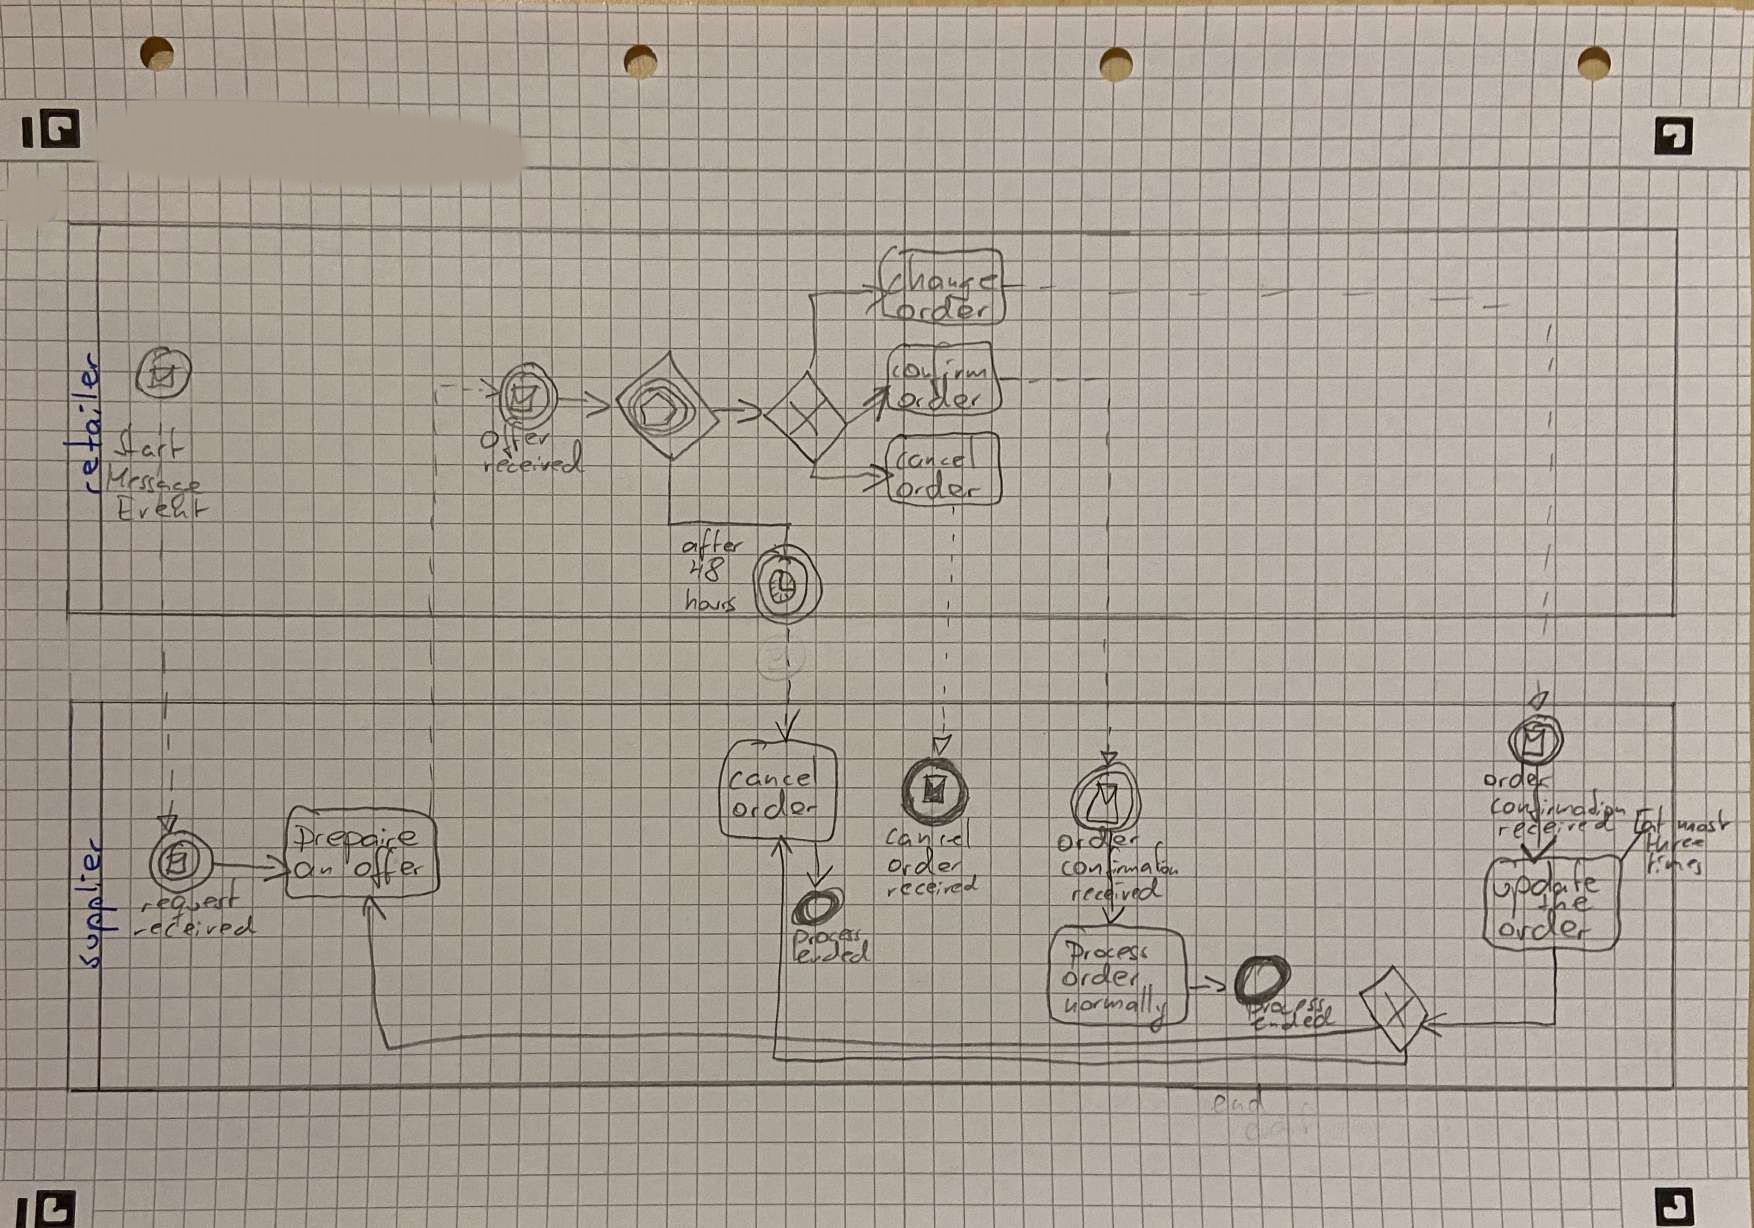 retailer
Start
Message
Event
Offer
received
change
order
confirm
order
cancel
order
after
48
hours
supplier
request
received
Prepaire
an offer
cancel
order
Process
ended
cancel
order
received
order
confirmation
received
Process
order
normally
process
ended
order
confirmation
received
at most
three
times
update
the
order
end